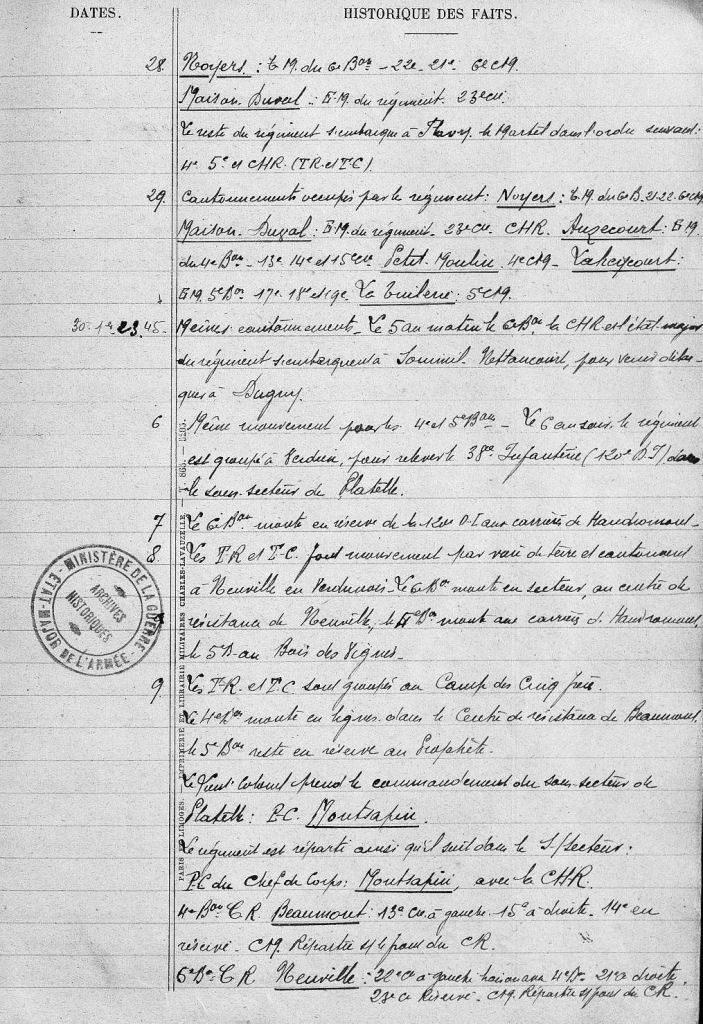 DATES. HISTORIQUE DES FAITS.
28. Noyers: E.M. du 6e Bon - 22e 21e 6e CM.
Maison-Duval: E.M. du régiment. 23e Cie.
Le reste du régiment s'embarque à Flavy le Martel dans l'ordre suivant:
4e 5e et CHR. (T.R. et T.C).
29. Cantonnements occupés par le régiment: Noyers: E.M. du 6e B. 21-22. 6e CM
Maison-Duval: E.M. du régiment. 23e Cie CHR. Auzecourt: E.M.
du 4e Bon - 13e 14e et 15e Cie Petit-Moulin. 4e CM - Laheycourt:
E.M. 5e Bon 17e 18e et 19e. La Tuilerie: 5e CM.
30. 1er 2 3. 4 5. Mêmes cantonnements - Le 5 au matin le 6e Bon la CHR et l'état major
du régiment s'embarquent à Sommeil-Nettancourt, pour venir débar-
quer à Dugny.
6 Même mouvement pour les 4e et 5e Bons - Le 6 au soir le régiment
est groupé à Verdun, pour relever le 38e Infanterie (120e D.I) dans
le sous-secteur de Platelle.
7 Le 6e Bon monte en réserve de la 120e D.I aux carrières d'Haudromont -
8. Les T.R et T.C. font mouvement par voie de terre et cantonnent
à Neuville en Verdunois - Le 6e Bon monte en secteur, au centre de
résistance de Neuville, le 4e Bon monte aux carrières d'Haudromont,
le 5e B au Bois des Vignes -
9. Les T.R. et T.C sont groupés au Camp des Cinq frères.
Le 4e Bon monte en lignes dans le Centre de résistance de Beaumont,
le 5e Bon reste en réserve au Prophète.
Le Lieut Colonel prend le commandement du sous-secteur de
Platelle: P.C. Montsapin.
Le régiment est réparti ainsi qu'il suit dans le S/Secteur:
P.C du Chef de Corps: Montsapin, avec la CHR.
4e Bon C.R. Beaumont: 13e Cie à gauche. 15e à droite. 14e en
réserve. CM. Répartie s/ le front du CR.
6e Bon C R Neuville: 22e Cie à gauche liaison avec 4e Bon 21e à droite
23e Cie Réserve - CM. Répartie s/ front du CR.
MINISTÈRE DE LA GUERRE
ETAT-MAJOR DE L'ARMÉE
ARCHIVES HISTORIQUES
PARIS ET LIMOGES. IMPRIMERIE ET LIBRAIRIE MILITAIRES CHARLES-LAVAUZELLE.